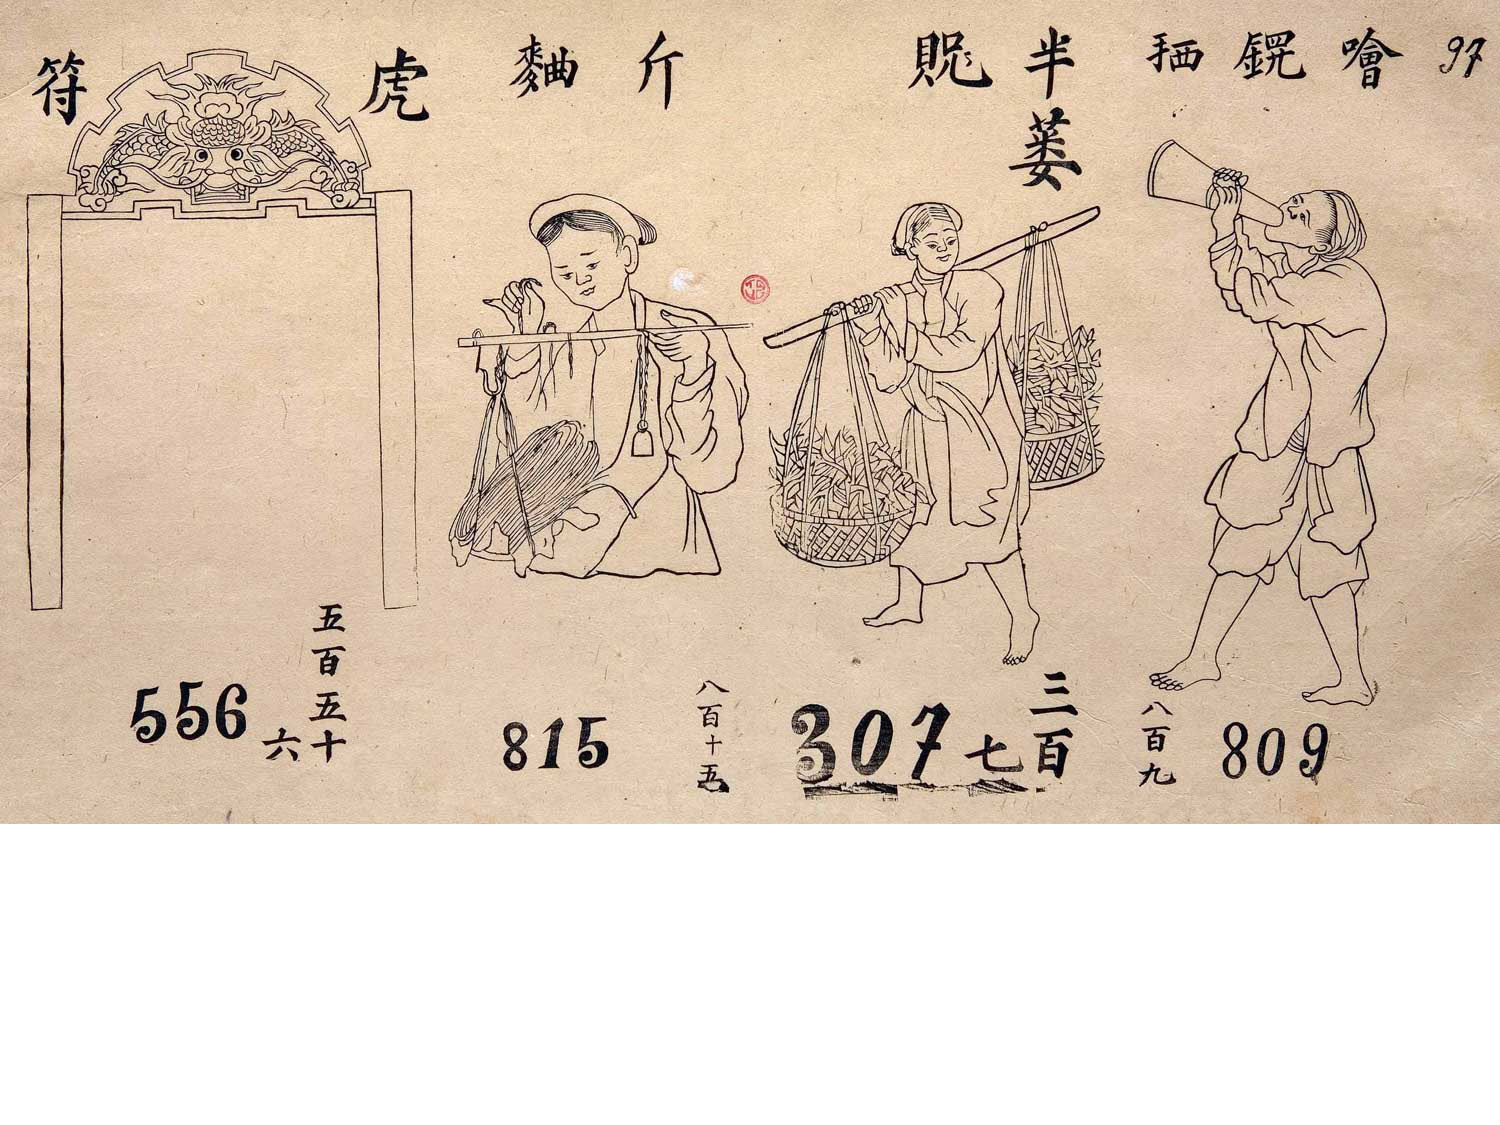 97
噲鎤栖
半賘
蒌
斤麯
虎符
八百九
809
三百
七
307
八百十五
815
五百五十
六
556